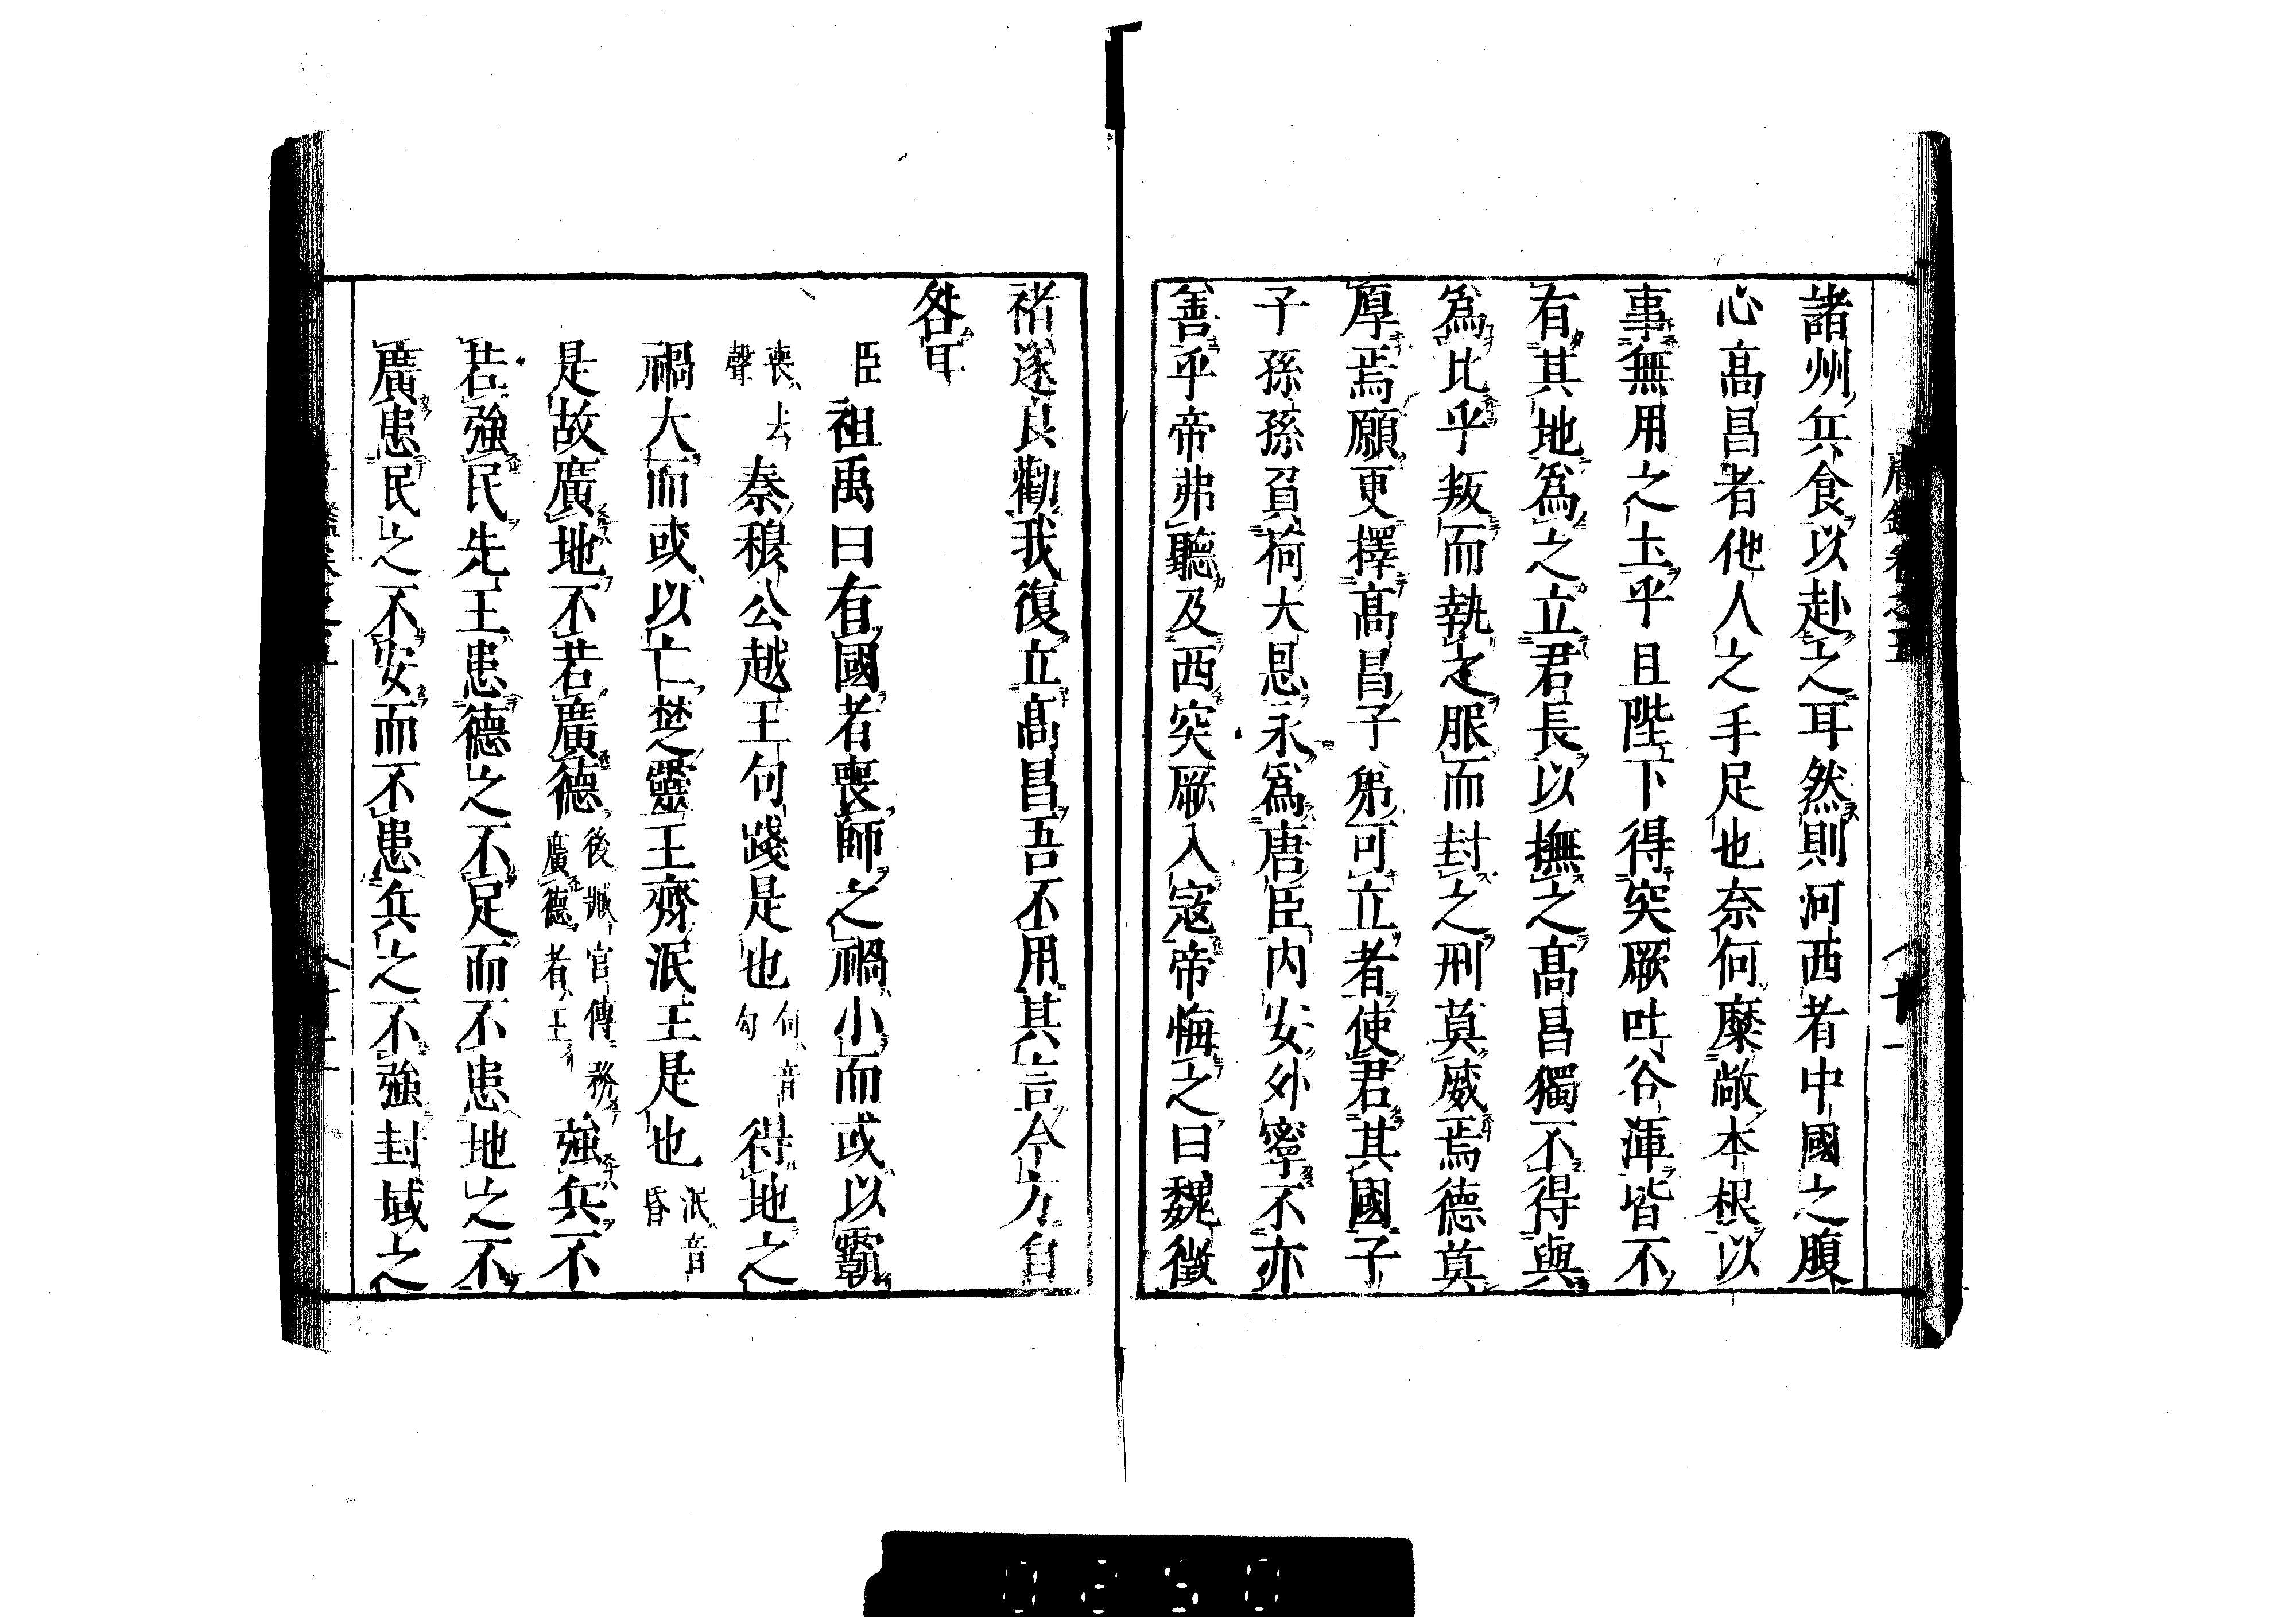 諸州兵食以赴之耳然則河西者中國之腹
心高昌者他人之手足也奈何糜敝本根以
事無用之土乎且陛下得突厥吐谷渾皆不
有其地爲之立君長以撫之高昌獨不得與
爲比乎叛而執之服而封之刑莫威焉德莫
厚焉願更擇高昌子弟可立者使君其國子
子孫孫負荷大恩永爲唐臣内安外寧不亦
善乎帝弗聽及西突厥入寇帝悔之曰魏徵
褚遂良勸我復立高昌吾不用其言今方自
咎耳
臣祖禹曰有國者喪師之禍小而或以霸
喪去聲秦穆公越王句踐是也句音勾得地之
禍大而或以亡楚靈王齊泯王是也泯音昏
是故廣地不若廣德後臧官傳務廣德者王強兵不
若強民先王患德之不足而不患地之不
廣患民之不安而不患兵之不強封域之